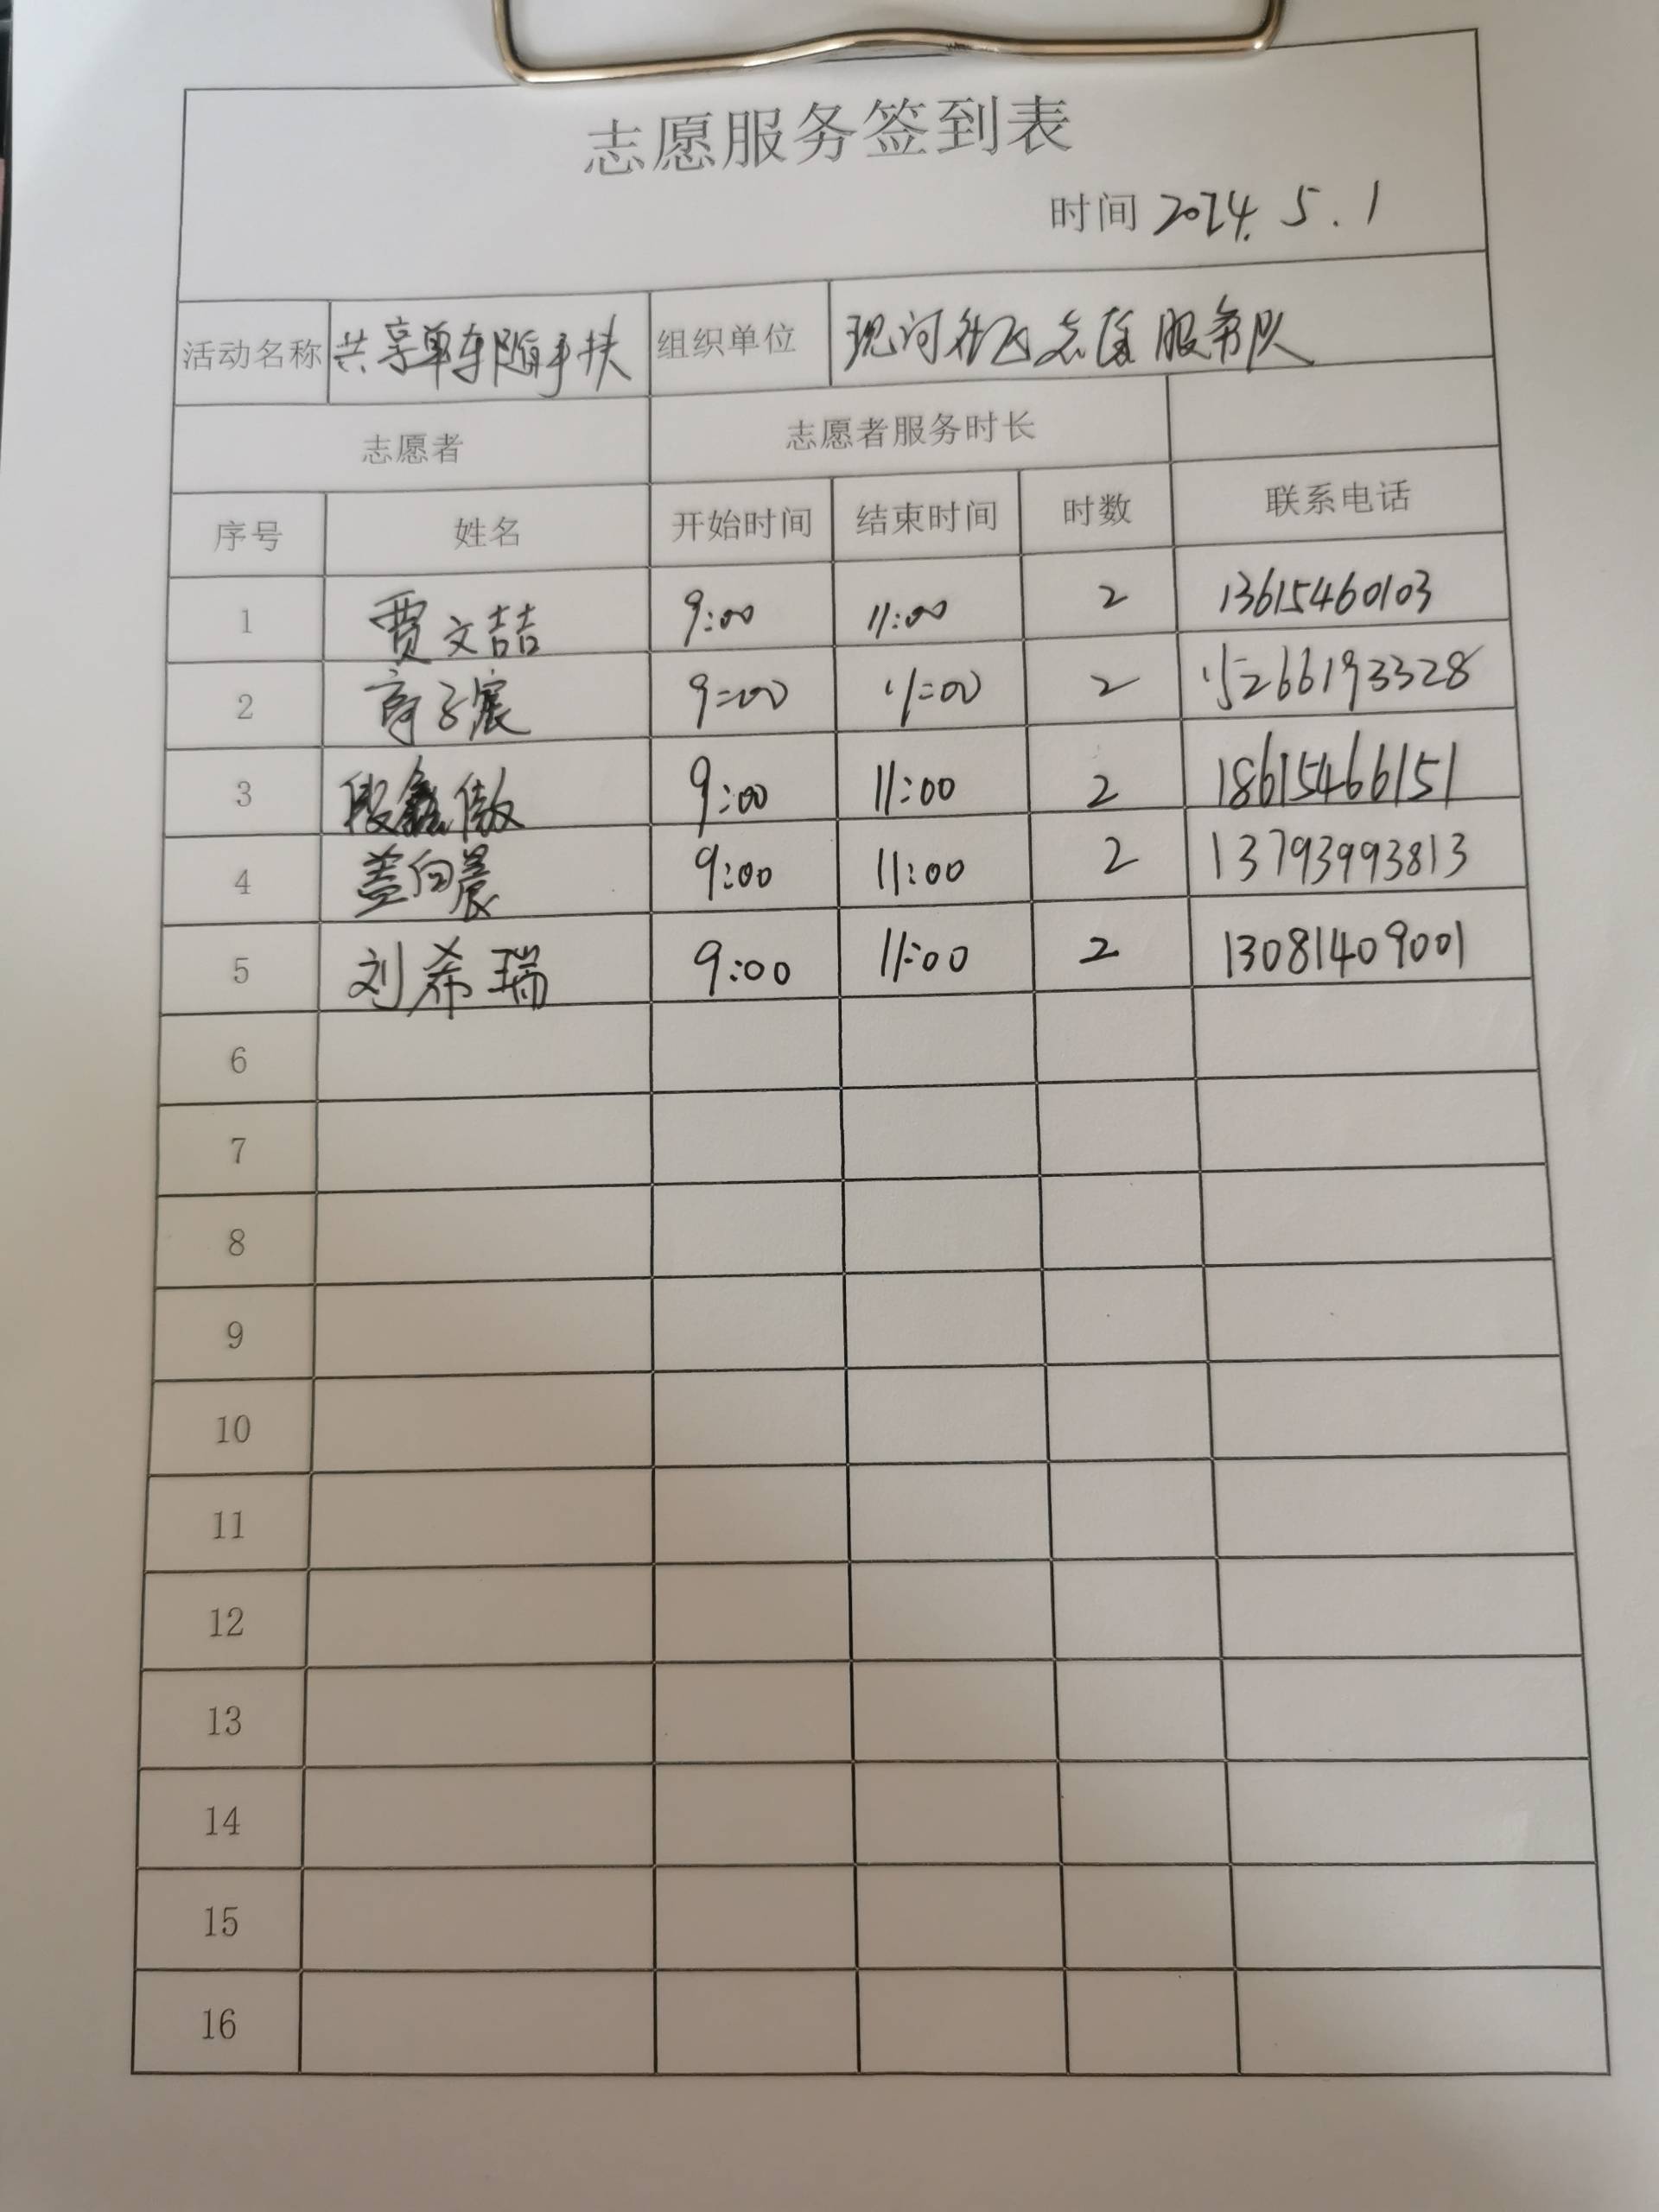 志愿服务签到表
时间 2024.5.1
活动名称 共享单车随手扶 组织单位 现河社区志愿服务队
志愿者 志愿者服务时长
序号 姓名 开始时间 结束时间 时数 联系电话
1 贾文喆 9:00 11:00 2 13615460103
2 子宸 9:00 11:00 2 15266193328
3 段鑫傲 9:00 11:00 2 18615466151
4 盖向晨 9:00 11:00 2 13793993813
5 刘希瑞 9:00 11:00 2 13081409001
6
7
8
9
10
11
12
13
14
15
16